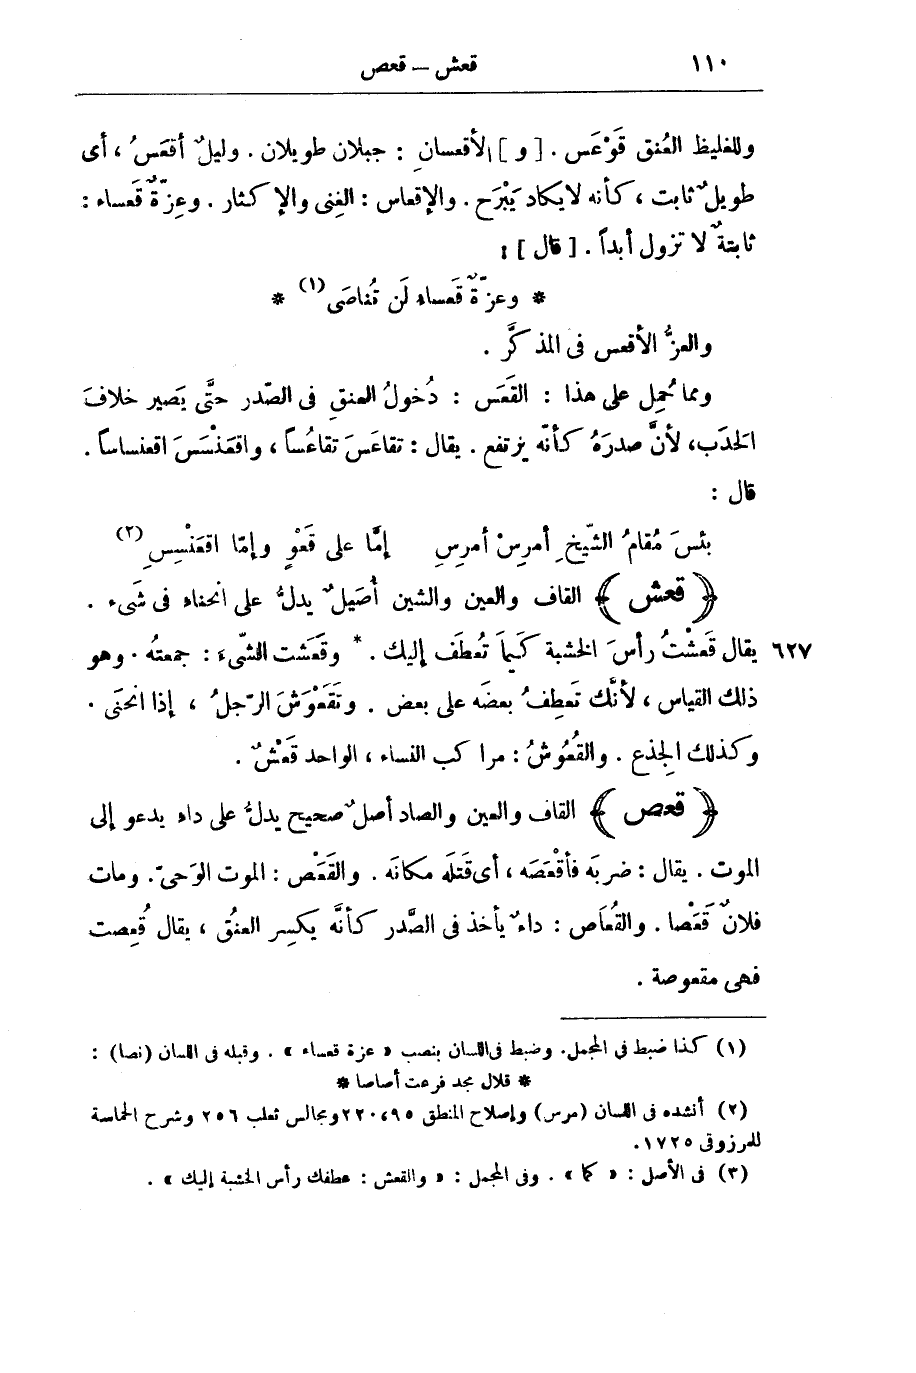 ١١٠ قعش — قعص
وللغليظ العُنق قَوْعَس . [ و ] الأقعسانِ : جبلان طويلان . وليلٌ أقعَسُ ، أى
طويلٌ ثابت ، كأنه لا يكاد يَبْرَح . والإقعاس : الغِنى والإكثار . وعِزّةٌ قَعساء :
ثابتةٌ لا تزول أبداً . [ قال ] :
* وعزّةٌ قَعساءِ لَن تُناصَى (١) *
والعزُّ الأقعس فى المذكَّر .
ومما حُمِل على هذا : القَعَس : دُخولُ العنقِ فى الصّدر حتَّى يَصير خلافَ
الحَدَب، لأنَّ صدرَهُ كأنّه يرتفع . يقال : تقاعَسَ تقاعُساً ، واقعَنْسَسَ اقعنساساً .
قال :
بئسَ مُقامُ الشّيخِ أمرِسْ أمرِسِ إمَّا على قَعْوٍ وإمّا اقعَنْسِسِ (٢)
﴿ قعش ﴾ القاف والعين والشين أُصَيلٌ يدلُّ على انحناءِ فى شَىء .
٦٢٧ يقال قَعشْتُ رأسَ الخشبة كَيما تُعطَف إليك . * وقَعَشت الشّىءَ : جمعتُه . وهو
ذلك القياس ، لأنَّك تَعطِفُ بعضَه على بعض . وتَقَعْوَشَ الرّجلُ ، إذا انحنَى .
وكذلك الجِذع . والقُعُوشُ : مراكب النساء ، الواحد قَعْشٌ .
﴿ قعص ﴾ القاف والعين والصاد أصلٌ صحيح يدلُّ على داءِ يدعو إلى
الموت . يقال : ضربَه فأقْعَصَه ، أى قَتلَه مكانَه . والقَعْص : الموت الوَحىّ. ومات
فلانٌ قَعْصا . والقُعَاص : داءٌ يأخذ فى الصَّدر كأنَّه يكسِر العنُق ، يقال قُعِصت
فهى مقعوصة .
(١) كذا ضبط فى المجمل. وضبط فى اللسان بنصب « عزة قعساء » . وقبله فى اللسان (نصا) :
* قلال مجد فرعت أصاصا *
(٢) أنشده فى اللسان (مرس) وإصلاح المنطق ٩٥، ٢٢٠ ومجالس ثعلب ٢٥٦ وشرح الحماسة
للمرزوقى ١٧٢٥.
(٣) فى الأصل : « كما » . وفى المجمل : « والقعش : عطفك رأس الخشبة إليك » .